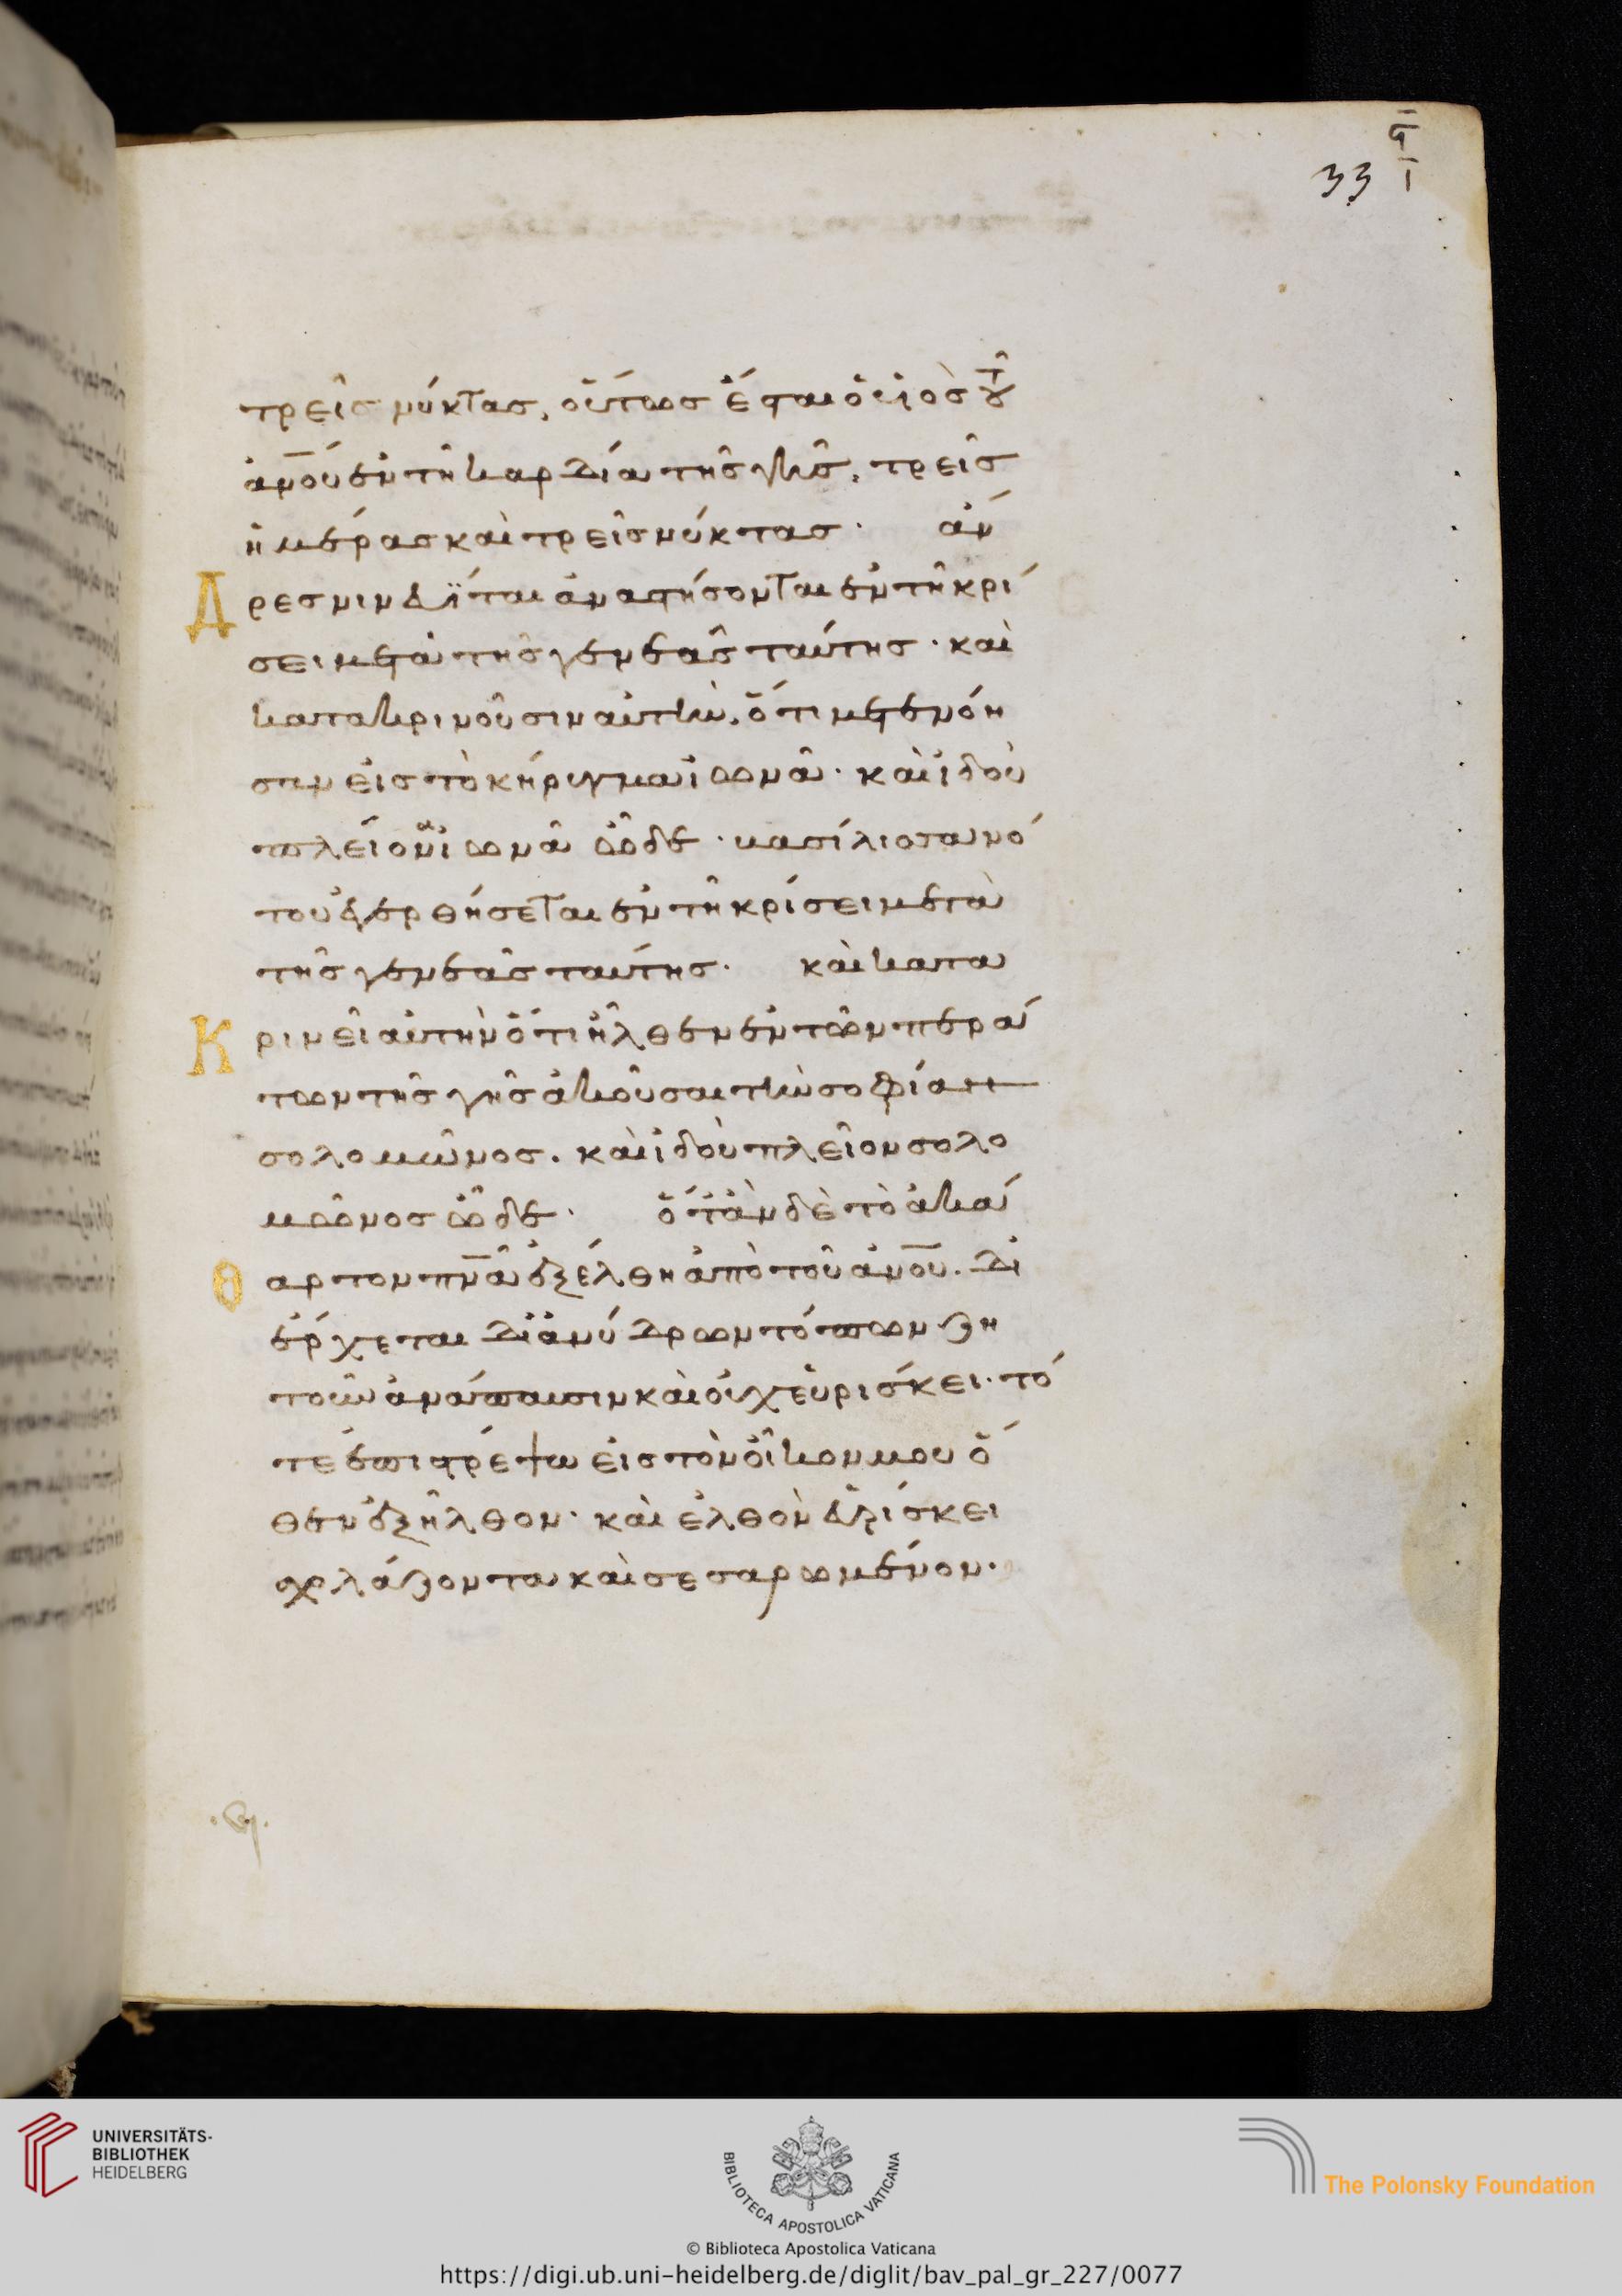 ϛ
ι
33
τρεῖς νύκτας, οὕτως ἔσται ὁ υἱὸς τοῦ
ἀν̅ου ἐν τῆ καρδία τῆς γῆς, τρεῖς
ἡμέρας καὶ τρεῖς νύκτας· ἄν
Δρες νινευΐται ἀναστήσονται ἐν τῆ κρί
σει μετὰ τῆς γενεᾶς ταύτης· καὶ
κατακρινοῦσιν αὐτὴν, ὅτι μετενόη
σαν εἰς τὸ κήρυγμα ἰωνᾶ· καὶ ἰδοὺ
πλεῖον ἰωνᾶ ὧδε· βασίλισσα νό
του ἐγερθήσεται ἐν τῆ κρίσει μετὰ
τῆς γενεᾶς ταύτης· καὶ κατα
Κρινεῖ αὐτὴν ὅτι ἦλθεν ἐν τῶν περά
των τῆς γῆς ἀκοῦσαι τὴν σοφίαν
σολομῶνος. καὶ ἰδοὺ πλεῖον σολο
μῶνος ὧδε· ὅταν δὲ τὸ ἀκά
Θαρτον πν̅α ἐξέλθη ἀπὸ τοῦ ἀν̅ου. δι
έρχεται δι ἀνύδρων τόπων ζη
τοῦν ἀνάπαυσιν καὶ οὐχ εὑρίσκει· τό
τε ἐπιστρέψω εἰς τὸν οἶκον μου ὅ
θεν ἐξῆλθον· καὶ ἐλθὸν εὑρίσκει
σχολάζοντα καὶ σεσαρωμένον·
UNIVERSITÄTS-
BIBLIOTHEK
HEIDELBERG
BIBLIOTECA APOSTOLICA VATICANA
© Biblioteca Apostolica Vaticana
The Polonsky Foundation
https://digi.ub.uni-heidelberg.de/diglit/bav_pal_gr_227/0077